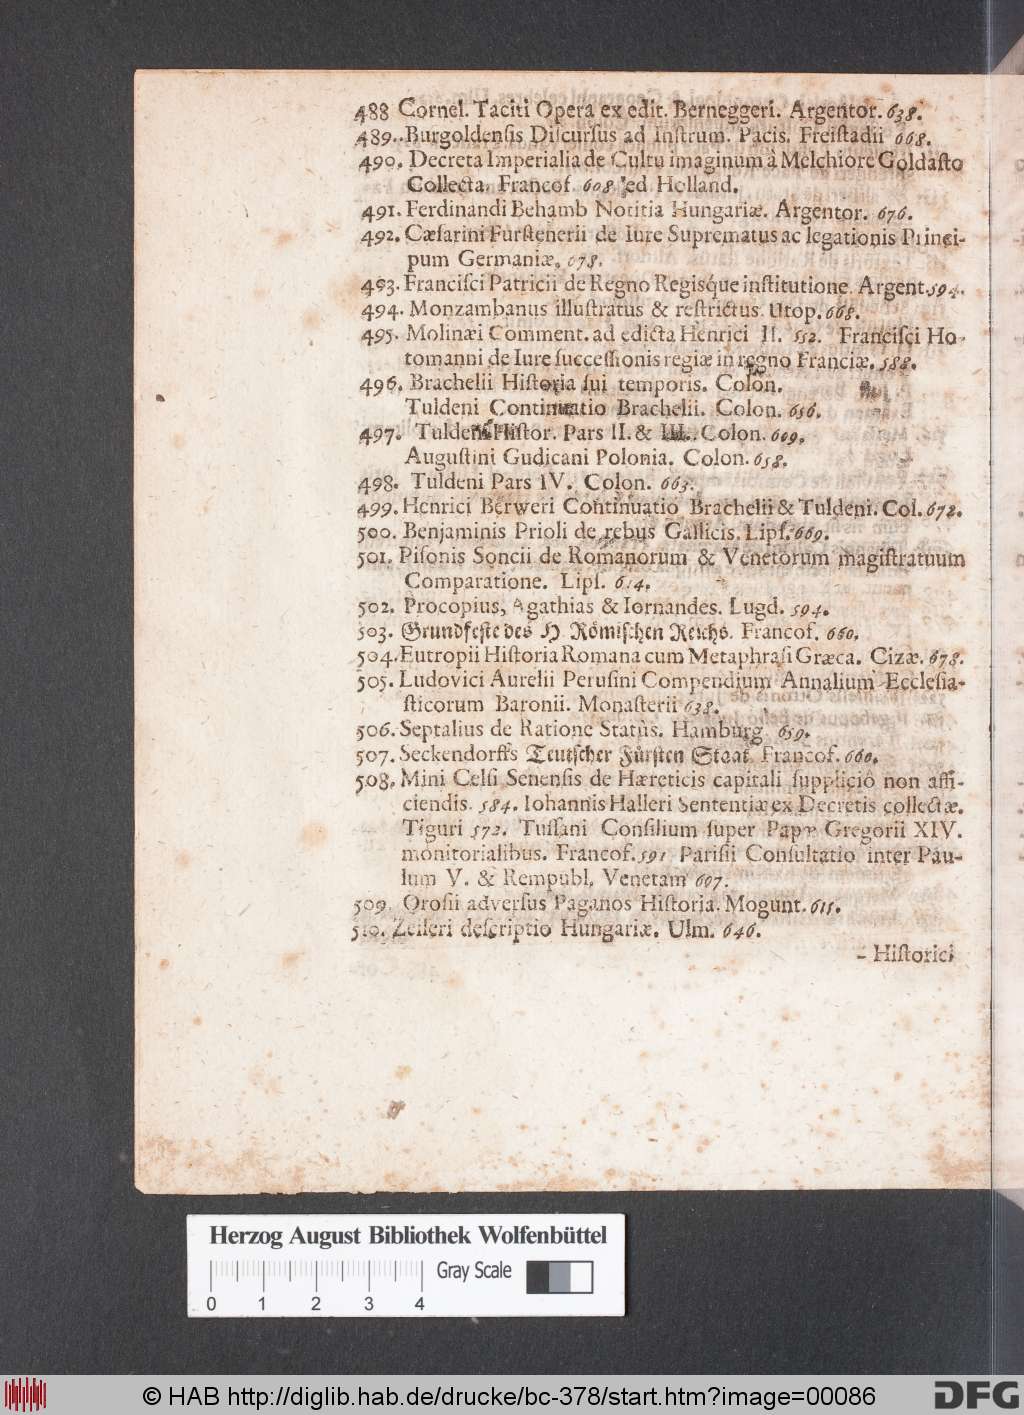 488 Cornel. Taciti Opera ex edit. Berneggeri. Argentor. 638.
489. Burgoldenſis Diſcurſus ad Inſtrum. Pacis. Freiſtadii 668.
490. Decreta Imperialia de Cultu imaginum à Melchiore Goldaſto
Collecta. Francof. 608. ed Holland.
491. Ferdinandi Behamb Notitia Hungariæ. Argentor. 676.
492. Cæſarini Furſtenerii de Iure Suprematus ac legationis Princi-
pum Germaniæ. 678.
493. Franciſci Patricii de Regno Regisq́ue inſtitutione. Argent. 594.
494. Monzambanus illuſtratus & reſtrictus. Utop. 668.
495. Molinæi Comment. ad edicta Henrici II. 552. Franciſci Ho-
tomanni de Iure ſucceſſionis regiæ in regno Franciæ. 588.
496. Brachelii Hiſtoria ſui temporis. Colon.
Tuldeni Continuatio Brachelii. Colon. 656.
497. Tuldeni Hiſtor. Pars II. & III. Colon. 609.
Auguſtini Gudicani Polonia. Colon. 658.
498. Tuldeni Pars IV. Colon. 663.
499. Henrici Berweri Continuatio Brachelii & Tuldeni. Col. 672.
500. Benjaminis Prioli de rebus Gallicis. Lipſ. 669.
501. Piſonis Soncii de Romanorum & Venetorum magiſtratuum
Comparatione. Lipſ. 614.
502. Procopius, Agathias & Iornandes. Lugd. 594.
503. Grundfeſte des H. Römiſchen Reichs. Francof. 660.
504. Eutropii Hiſtoria Romana cum Metaphraſi Græca. Cizæ. 678.
505. Ludovici Aurelii Peruſini Compendium Annalium Eccleſia-
ſticorum Baronii. Monaſterii 638.
506. Septalius de Ratione Statùs. Hamburg. 659.
507. Seckendorffs Teutſcher Fürſten Staat Francof. 660.
508. Mini Celſi Senenſis de Hæreticis capitali ſupplicio non affi-
ciendis. 584. Iohannis Halleri Sententiæ ex Decretis collectæ.
Tiguri 572. Tuſſani Conſilium ſuper Papæ Gregorii XIV.
monitorialibus. Francof. 591 Pariſii Conſultatio inter Pau-
lum V. & Rempubl. Venetam 607.
509. Oroſii adverſus Paganos Hiſtoria. Mogunt. 615.
510. Zeileri deſcriptio Hungariæ. Ulm. 646.
- Hiſtorici
Herzog August Bibliothek Wolfenbüttel
Gray Scale
0 1 2 3 4
© HAB http://diglib.hab.de/drucke/bc-378/start.htm?image=00086
DFG